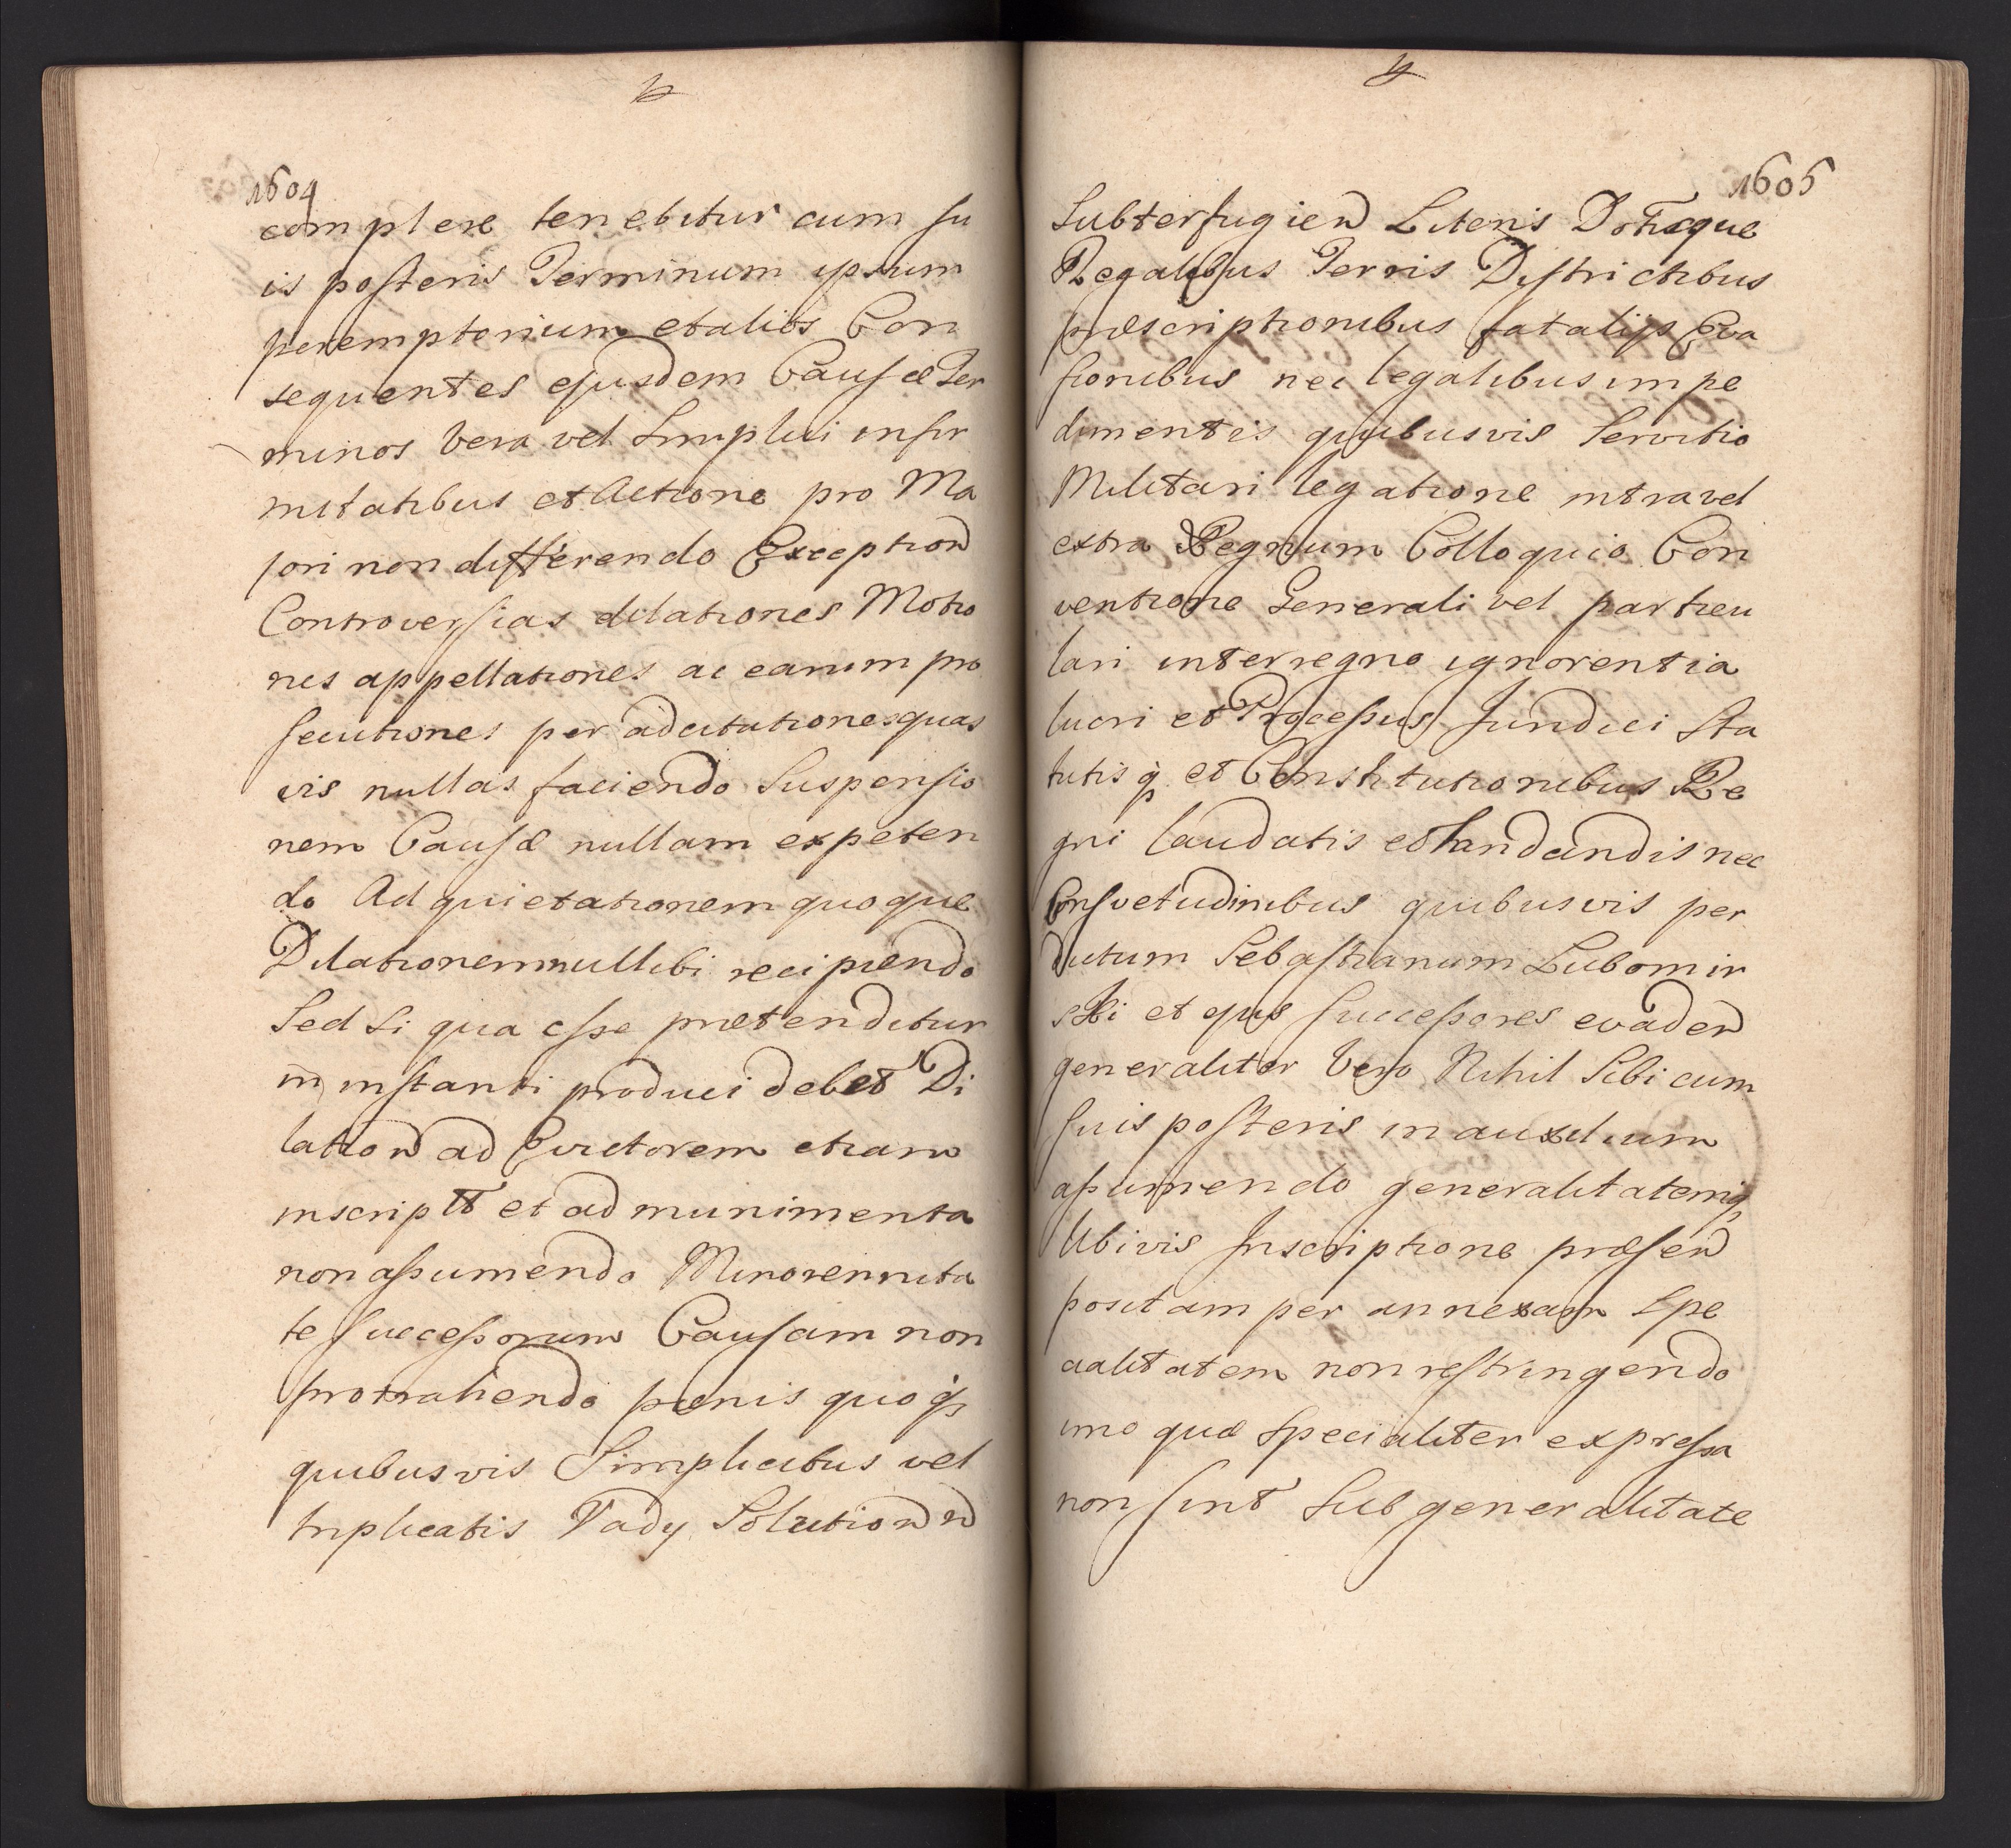 1604
complere tenebitur cum su
is posteris Terminum ipsum
peremptorium et alios Con
sequentes ejusdem Causæ Ter
minos vera vel Simplici infir
mitatibus et Actione pro Ma
jori non differendo Exception
Controversias dilationes Motio
nes appellationes ac earum pro
secutiones per adcitationes quas
vis nullas faciendo Suspensio
nem Causæ nullam expeten
do Ad quietationem quoque
Dilationem nullibi recipiendo
Sed Si qua esse prætenditur
in instanti produci debet Di
lation ad Evictorem etiam
inscriptt et ad munimenta
non assumendo Minorennita
te Successorum Causam non
protrahendo pænis quoqs
quibusvis Simplicibus vel
triplicatis Vady Solution
1605
Subterfugien Literis Dotieque
Regalibus Terris Districtibus
præscriptionibus fatalijs Eva
sionibus nec legalibus impe
dimentis quibusvis Servitio
Militari legatione intra vel
extra Regnum Colloquio Con
ventione Generali vel particu
lari interregno ignorentia
lucri et Processus Juridici Sta
tutis q et Constitutionibus Re
gni laudatis et laudandis nec
Consvetudinibus quibusvis per
dictum Sebastianum Lubomir
ski et ejus Successores evaden
generaliter Vero Nihil Sibi cum
suis posteris in auxilium
assumendo generalitatemq
Ubivis Inscriptione præsen
positam per annexam Spe
cialitatem non restringendo
imo quæ Specialiter expressa
non sint Sub generalitate